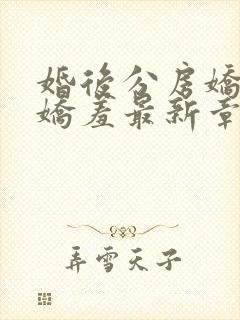 婚後分房嬌
嬌羞最新章
弄雪天子